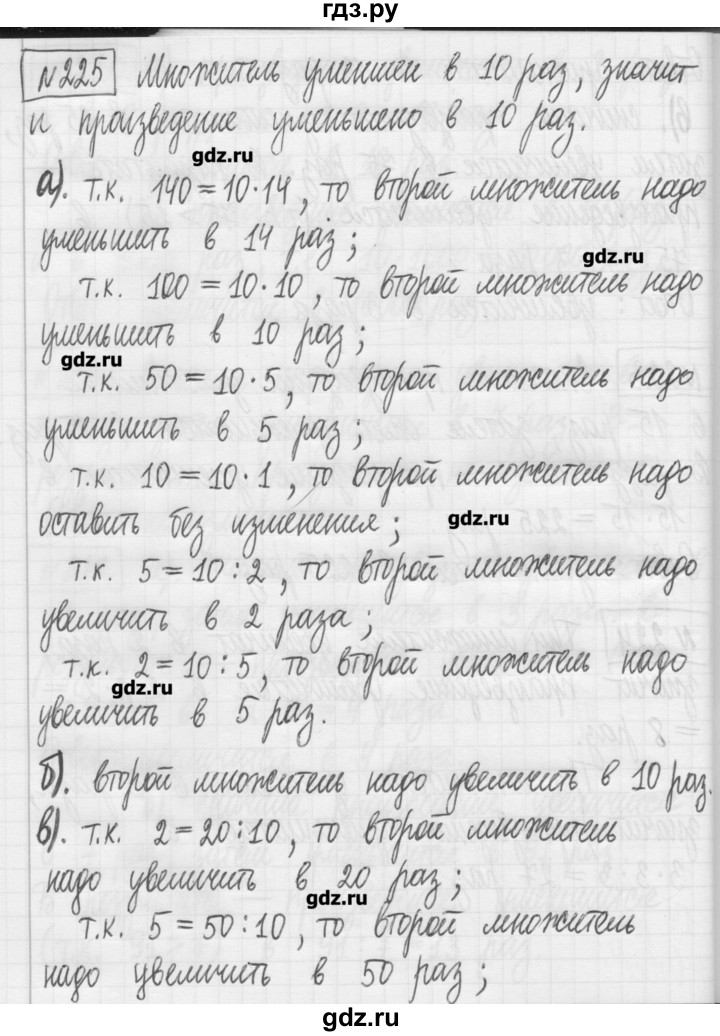 гдз.ру
№225 Множитель уменшен в 10 раз, значит
и произведение уменьшено в 10 раз.
gdz.ru
а). т.к. 140 = 10·14, то второй множитель надо
уменьшить в 14 раз;
gdz.ru
т.к. 100 = 10·10, то второй множитель надо
уменьшить в 10 раз;
gdz.ru
т.к. 50 = 10·5, то второй множитель надо
уменьшить в 5 раз;
т.к. 10 = 10·1, то второй множитель надо
оставить без изменения;
gdz.ru
т.к. 5 = 10:2, то второй множитель надо
увеличить в 2 раза;
т.к. 2 = 10:5, то второй множитель надо
gdz.ru
увеличить в 5 раз.
б). второй множитель надо увеличить в 10 раз.
в). т.к. 2 = 20:10, то второй множитель
надо увеличить в 20 раз;
gdz.ru
т.к. 5 = 50:10, то второй множитель
надо увеличить в 50 раз;
gdz.ru